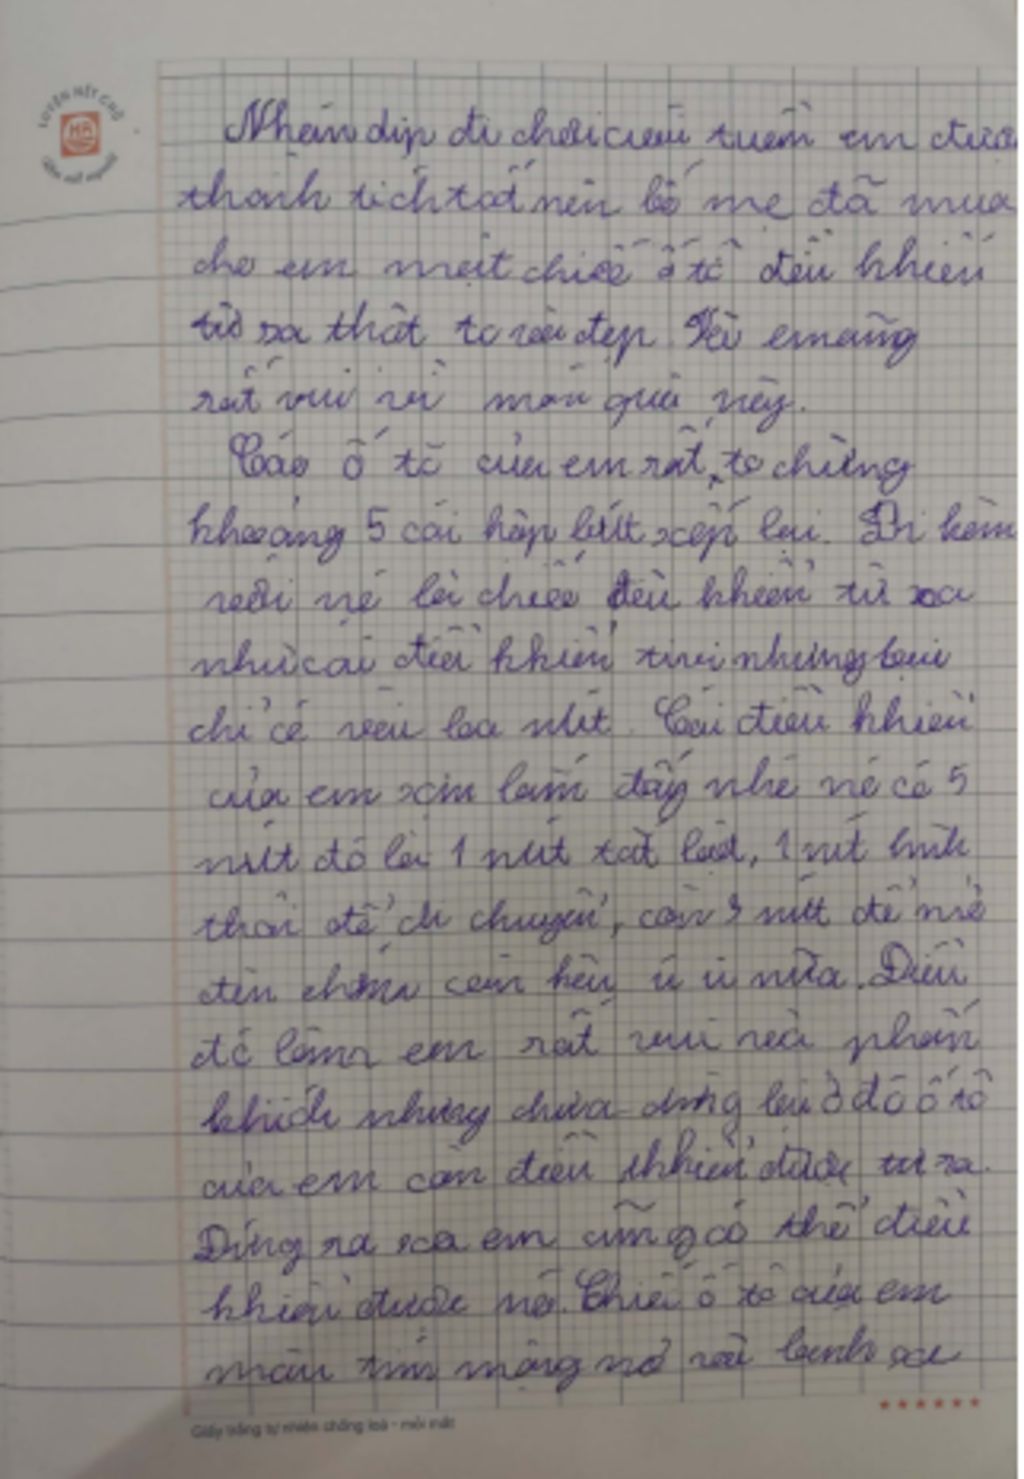 LUYỆN NÉT CHỮ
Nhân dịp đi chơi cuối tuần em được
thành tích tốt nên bố mẹ đã mua
cho em một chiếc ô tô điều khiển
từ xa thật to và đẹp. Và em cũng
rất vui vì món quà này.
Cáo ố tô của em rất to chừng
khoảng 5 cái hộp bút xếp lại. Đi kèm
với nó là chiếc điều khiển từ xa
như cái điều khiển tivi nhưng lại
chỉ có vài ba nút. Cái điều khiển
của em xịn lắm đấy nhé nó có 5
nút đó là 1 nút tắt bật, 1 nút
để di chuyển, còn 3 nút để mở
đèn còn kêu ú ú nữa. Điều
đó làm em rất vui và phấn
khích nhưng chưa dừng lại ở đó ô tô
của em còn điều khiển được từ xa.
Đứng ra xa em cũng có thể điều
khiển được nó. Chiếc ô tô của em
màu tím mộng mơ và bánh xe
Giấy trắng tự nhiên chống loá - mỏi mắt